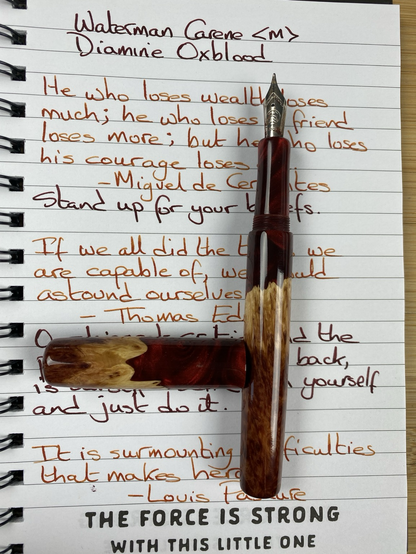 Waterman Carene <M>
Diamine Oxblood
He who loses wealth loses
much; he who loses friend
loses more; but he who loses
his courage loses
- Miguel de Cervantes
Stand up for your beliefs.
If we all did the we
are capable of, we would
astound ourselves
- Thomas Ed
the
back,
yourself
and just do it.
It is surmounting difficulties
that makes hero
- Louis Pasteure
THE FORCE IS STRONG
WITH THIS LITTLE ONE